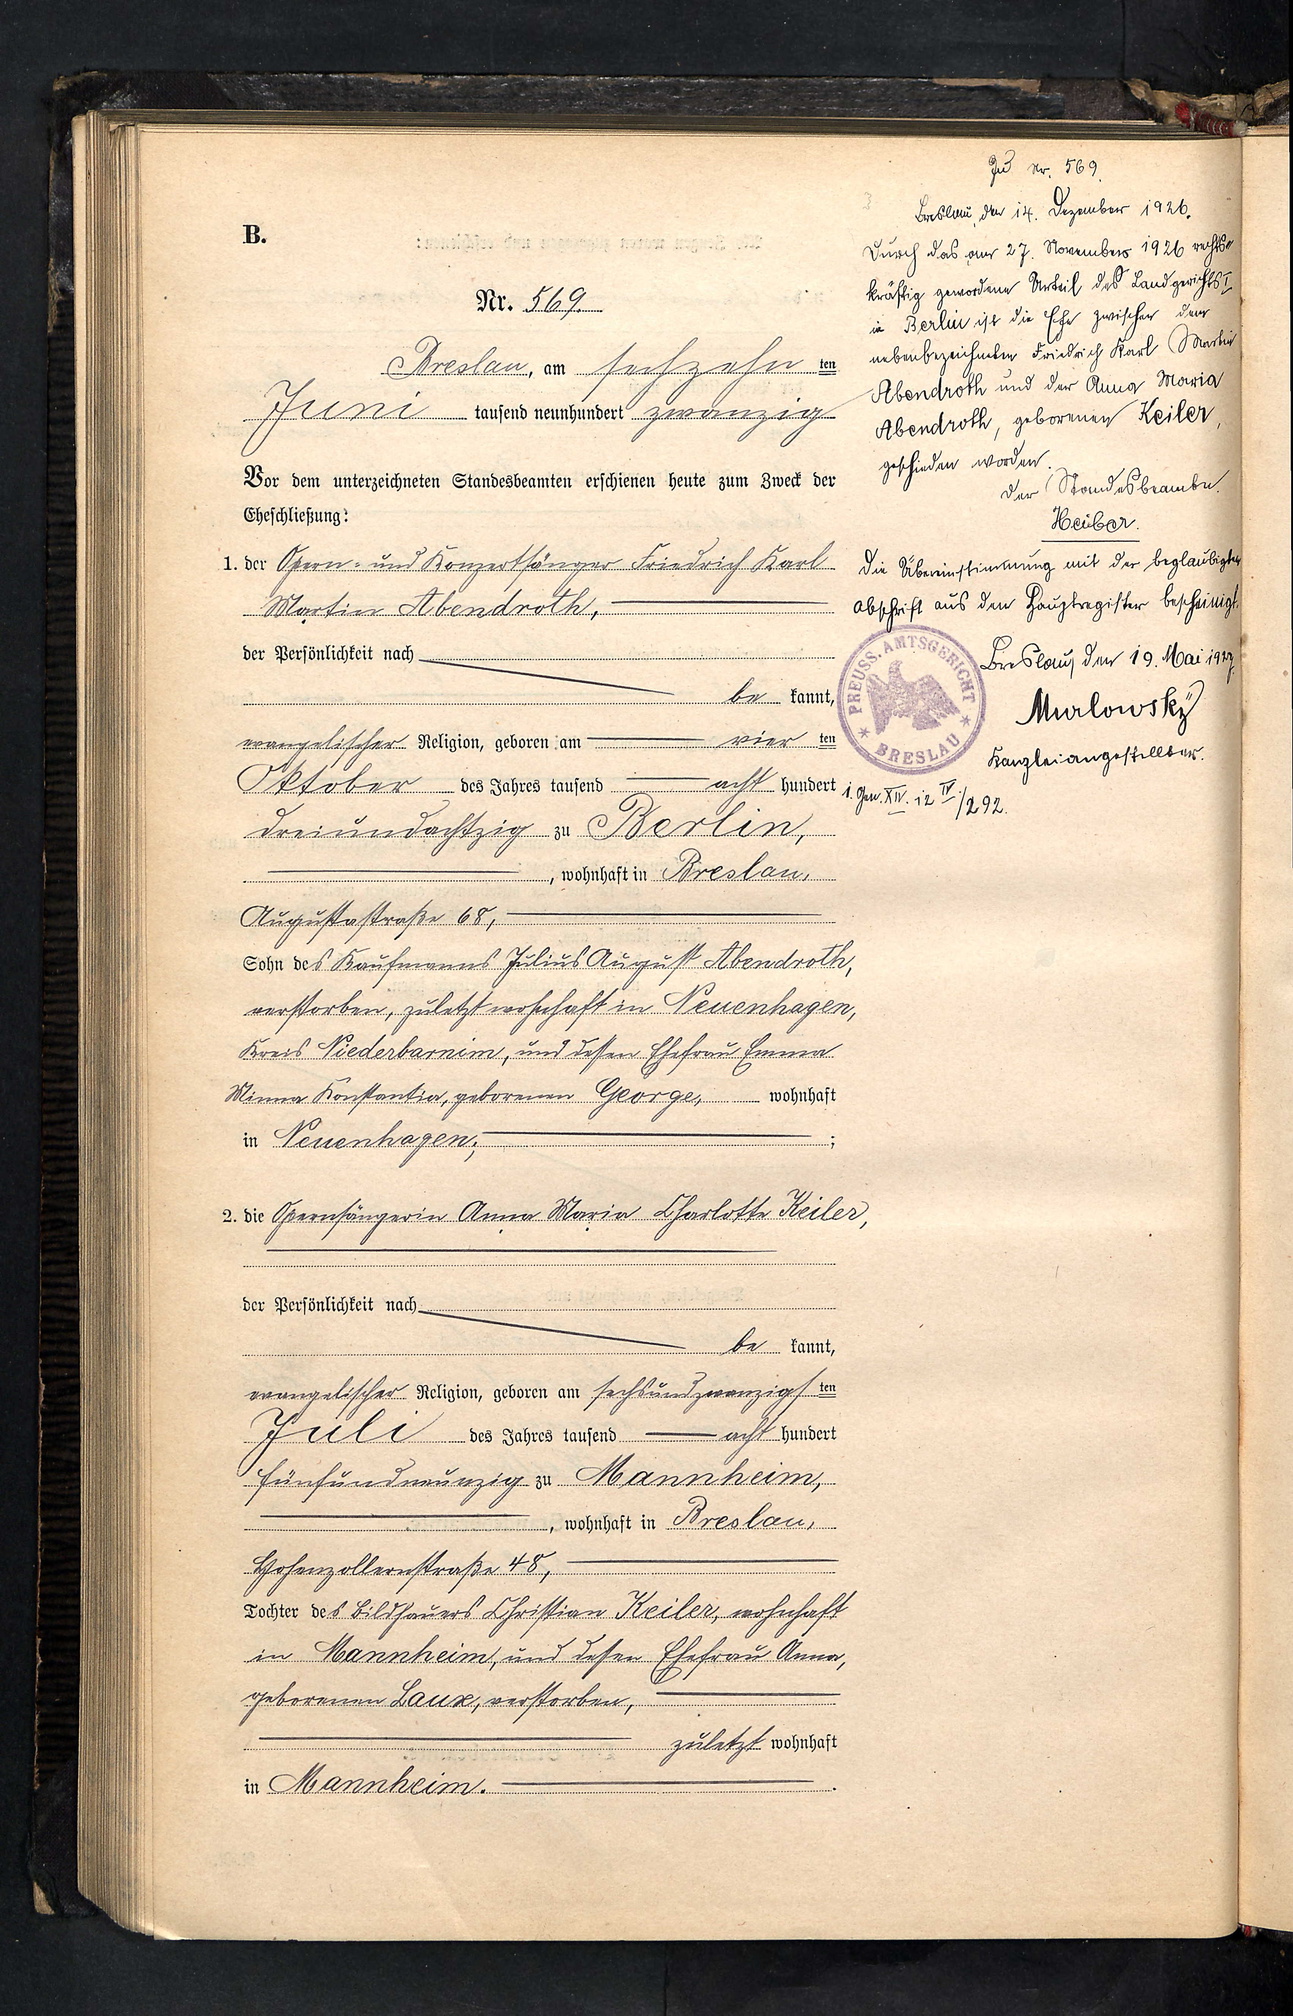 B.
Nr. 569.
Breslau, am sechzehn ten
Juni tausend neunhundert zwanzig
Vor dem unterzeichneten Standesbeamten erschienen heute zum Zweck der
Eheschließung:
1. der Opern- und Konzertsänger Friedrich Karl
Martin Abendroth,
der Persönlichkeit nach
be kannt,
evangelischer Religion, geboren am vier ten
Oktober des Jahres tausend acht hundert
dreiundachtzig zu Berlin,
, wohnhaft in Breslau,
Augustastraße 68,
Sohn des Kaufmanns Julius August Abendroth,
verstorben, zuletzt wohnhaft in Neuenhagen,
Kreis Niederbarnim, und dessen Ehefrau Emma
Minna Konstantia, geborenen George, wohnhaft
in Neuenhagen; ;
2. die Opernsängerin Anna Maria Charlotte Keiler,
der Persönlichkeit nach
be kannt,
evangelischer Religion, geboren am sechsundzwanzigs ten
Juli des Jahres tausend acht hundert
fünfundneunzig zu Mannheim,
, wohnhaft in Breslau,
Hohenzollernstraße 48,
Tochter des Bildhauers Christian Keiler, wohnhaft
in Mannheim, und dessen Ehefrau Anna,
geborenen Laux, verstorben,
zuletzt wohnhaft
in Mannheim. .
Zu Nr. 569.
Breslau, den 14. Dezember 1926.
Durch das am 27. November 1926 rechts-
kräftig gewordene Urteil des Landgerichts I
in Berlin ist die Ehe zwischen dem
nebenbezeichneten Friedrich Karl Martin
Abendroth und der Anna Maria
Abendroth, geborenen Keiler,
geschieden worden.
Der Standesbeamte.
Heiber.
Die Übereinstimmung mit der beglaubigten
Abschrift aus dem Hauptregister bescheinigt.
Breslau, den 19. Mai 1927
Murlowsky
Kanzleiangestellter.
PREUSS. AMTSGERICHT
* BRESLAU *
1. Gen. XIV. 12 IV/292.